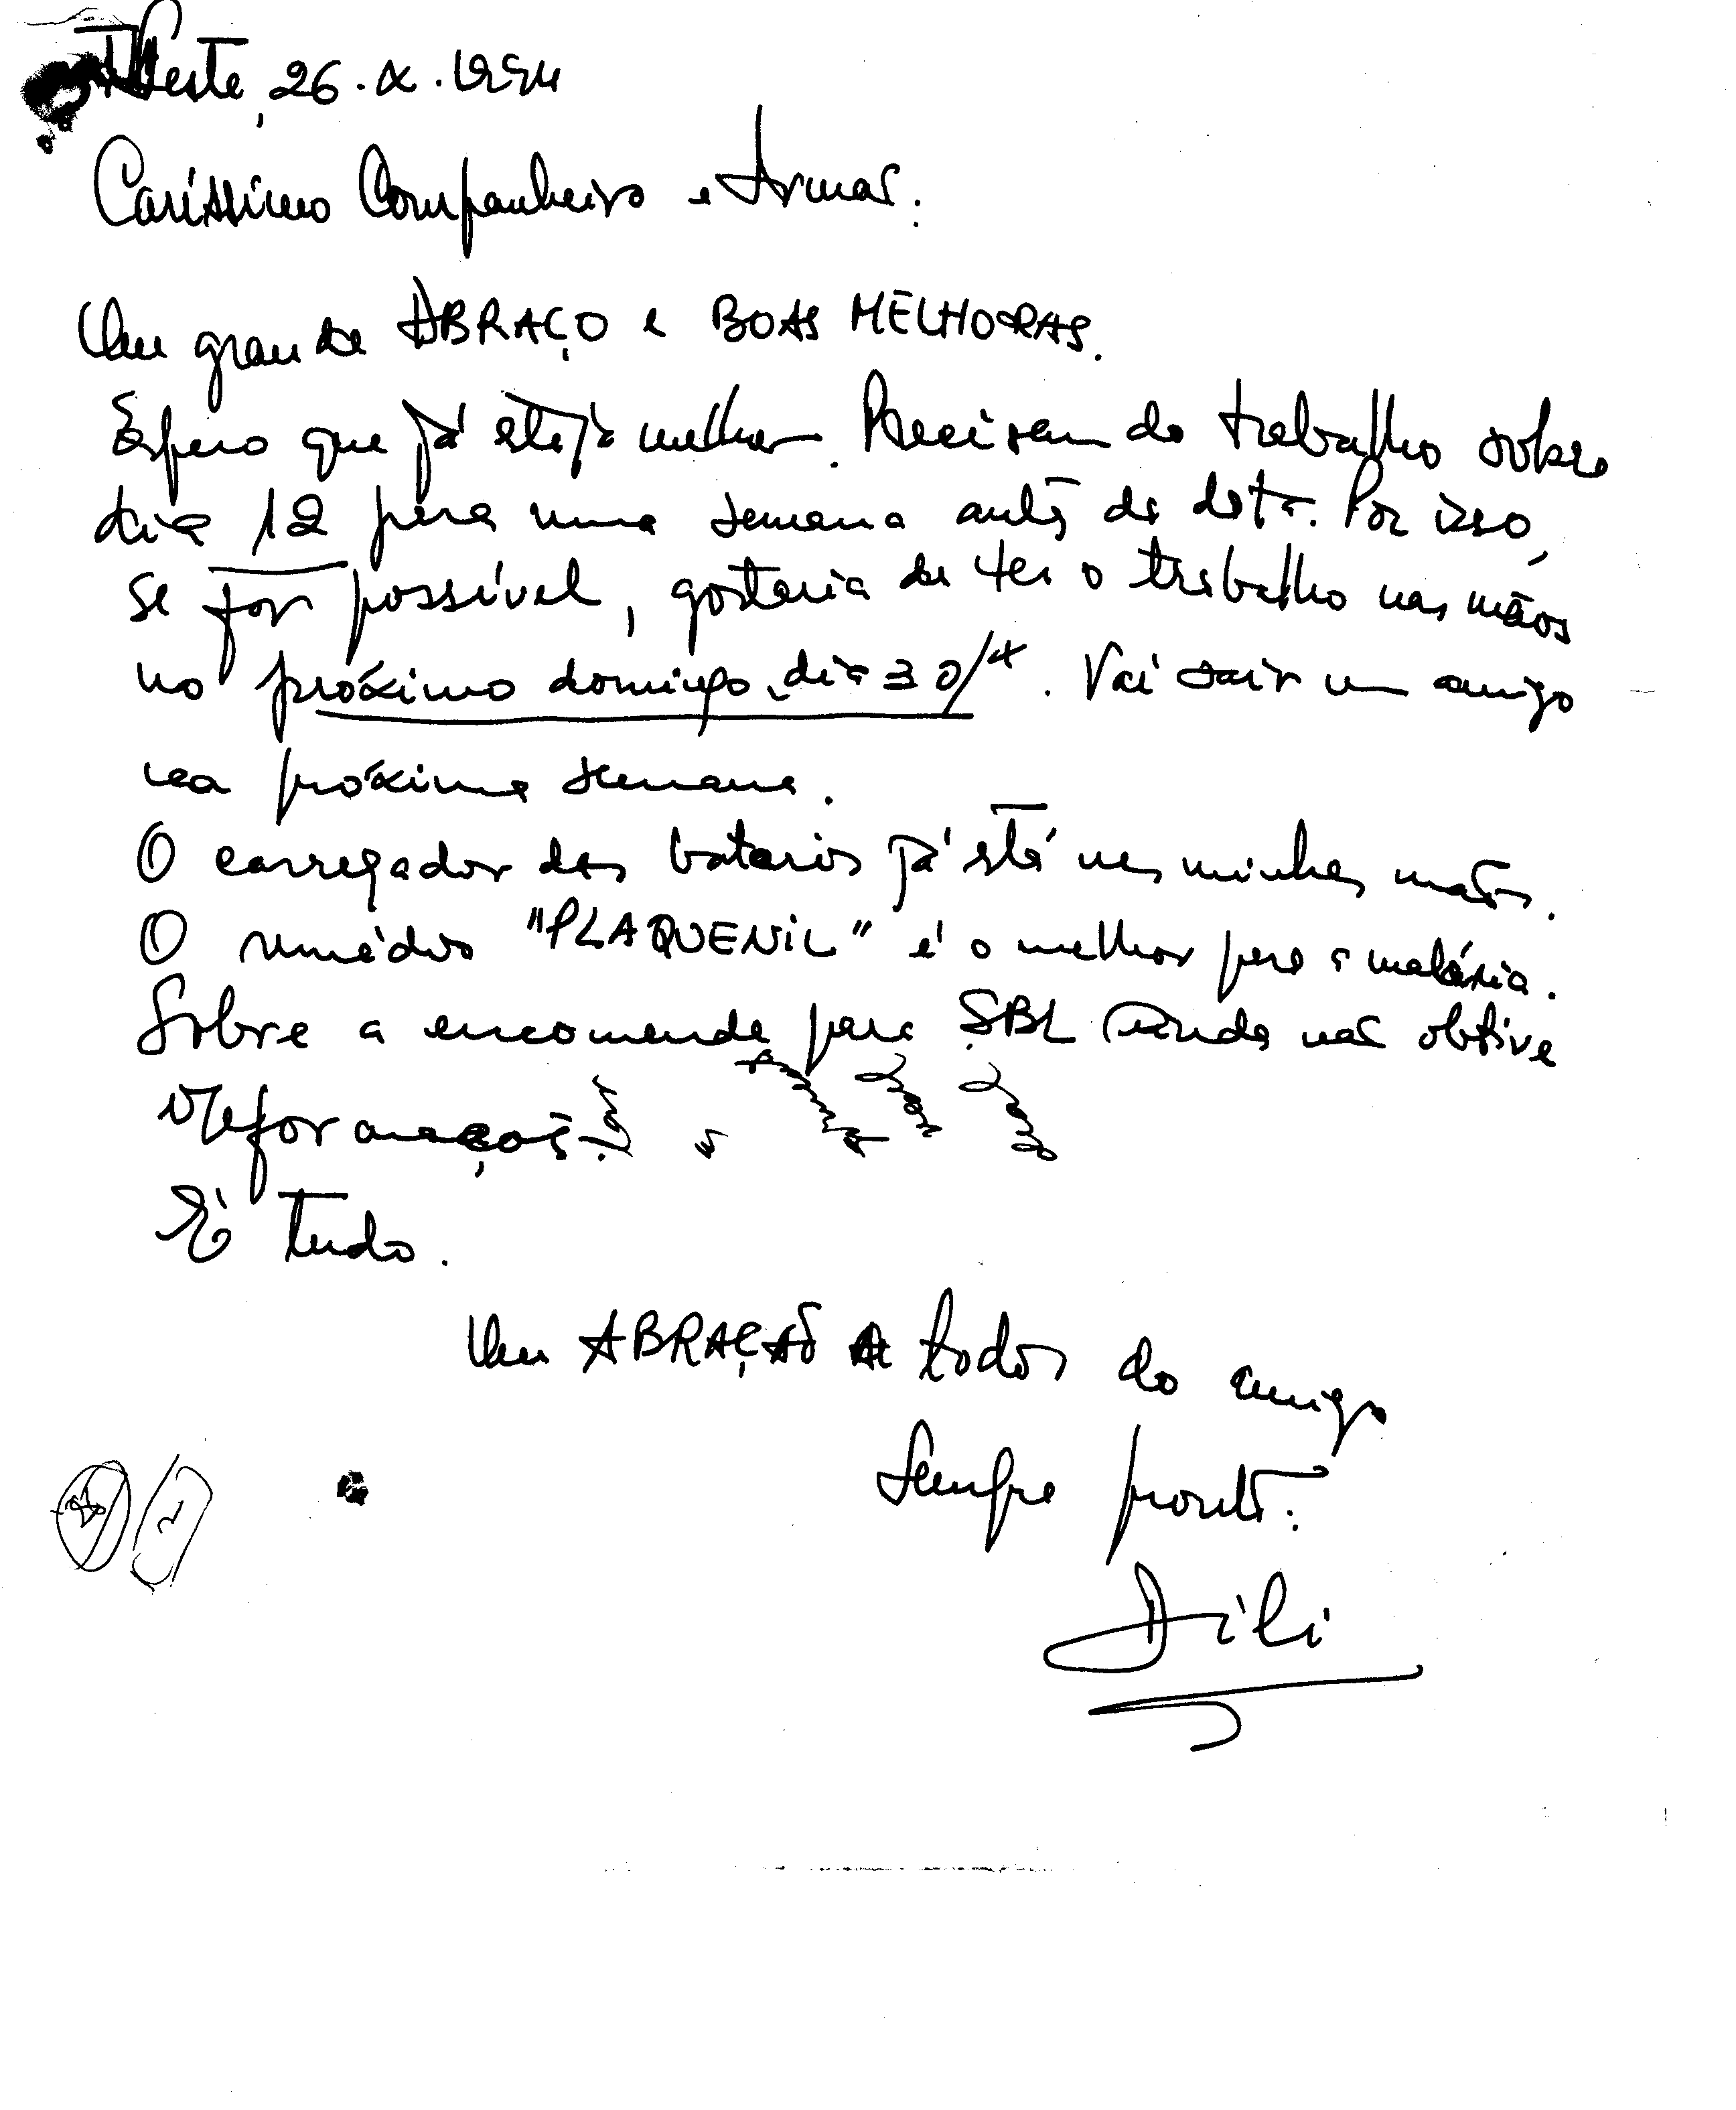 Neste, 26.X.1994
Caríssimo Companheiro e Irmão:
Um grande ABRAÇO e BOAS MELHORAS.
Espero que já esteja melhor. Precisam do trabalho sobre
dia 12 para uma semana antes da data. Por isso,
se for possível, gostaria de ter o trabalho nas mãos
no próximo domingo, dia 30/X. Vai sair um amigo
na próxima semana.
O carregador das baterias já está nas minhas mãos.
O remédio "PLAQUENIL" é o melhor para a malária.
Sobre a encomenda para SBL ainda não obtive
informações.
É tudo.
Um ABRAÇÃO A todos do amigo
Sempre pronto:
Dili